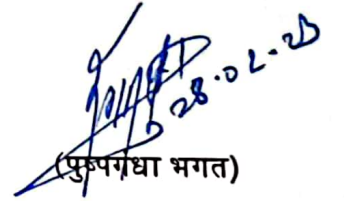 28.02.23
(पुष्पगंधा भगत)